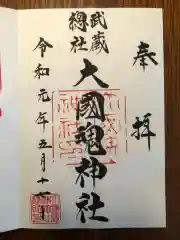 奉拝
武蔵
總社
大國魂神社
令和元年五月十